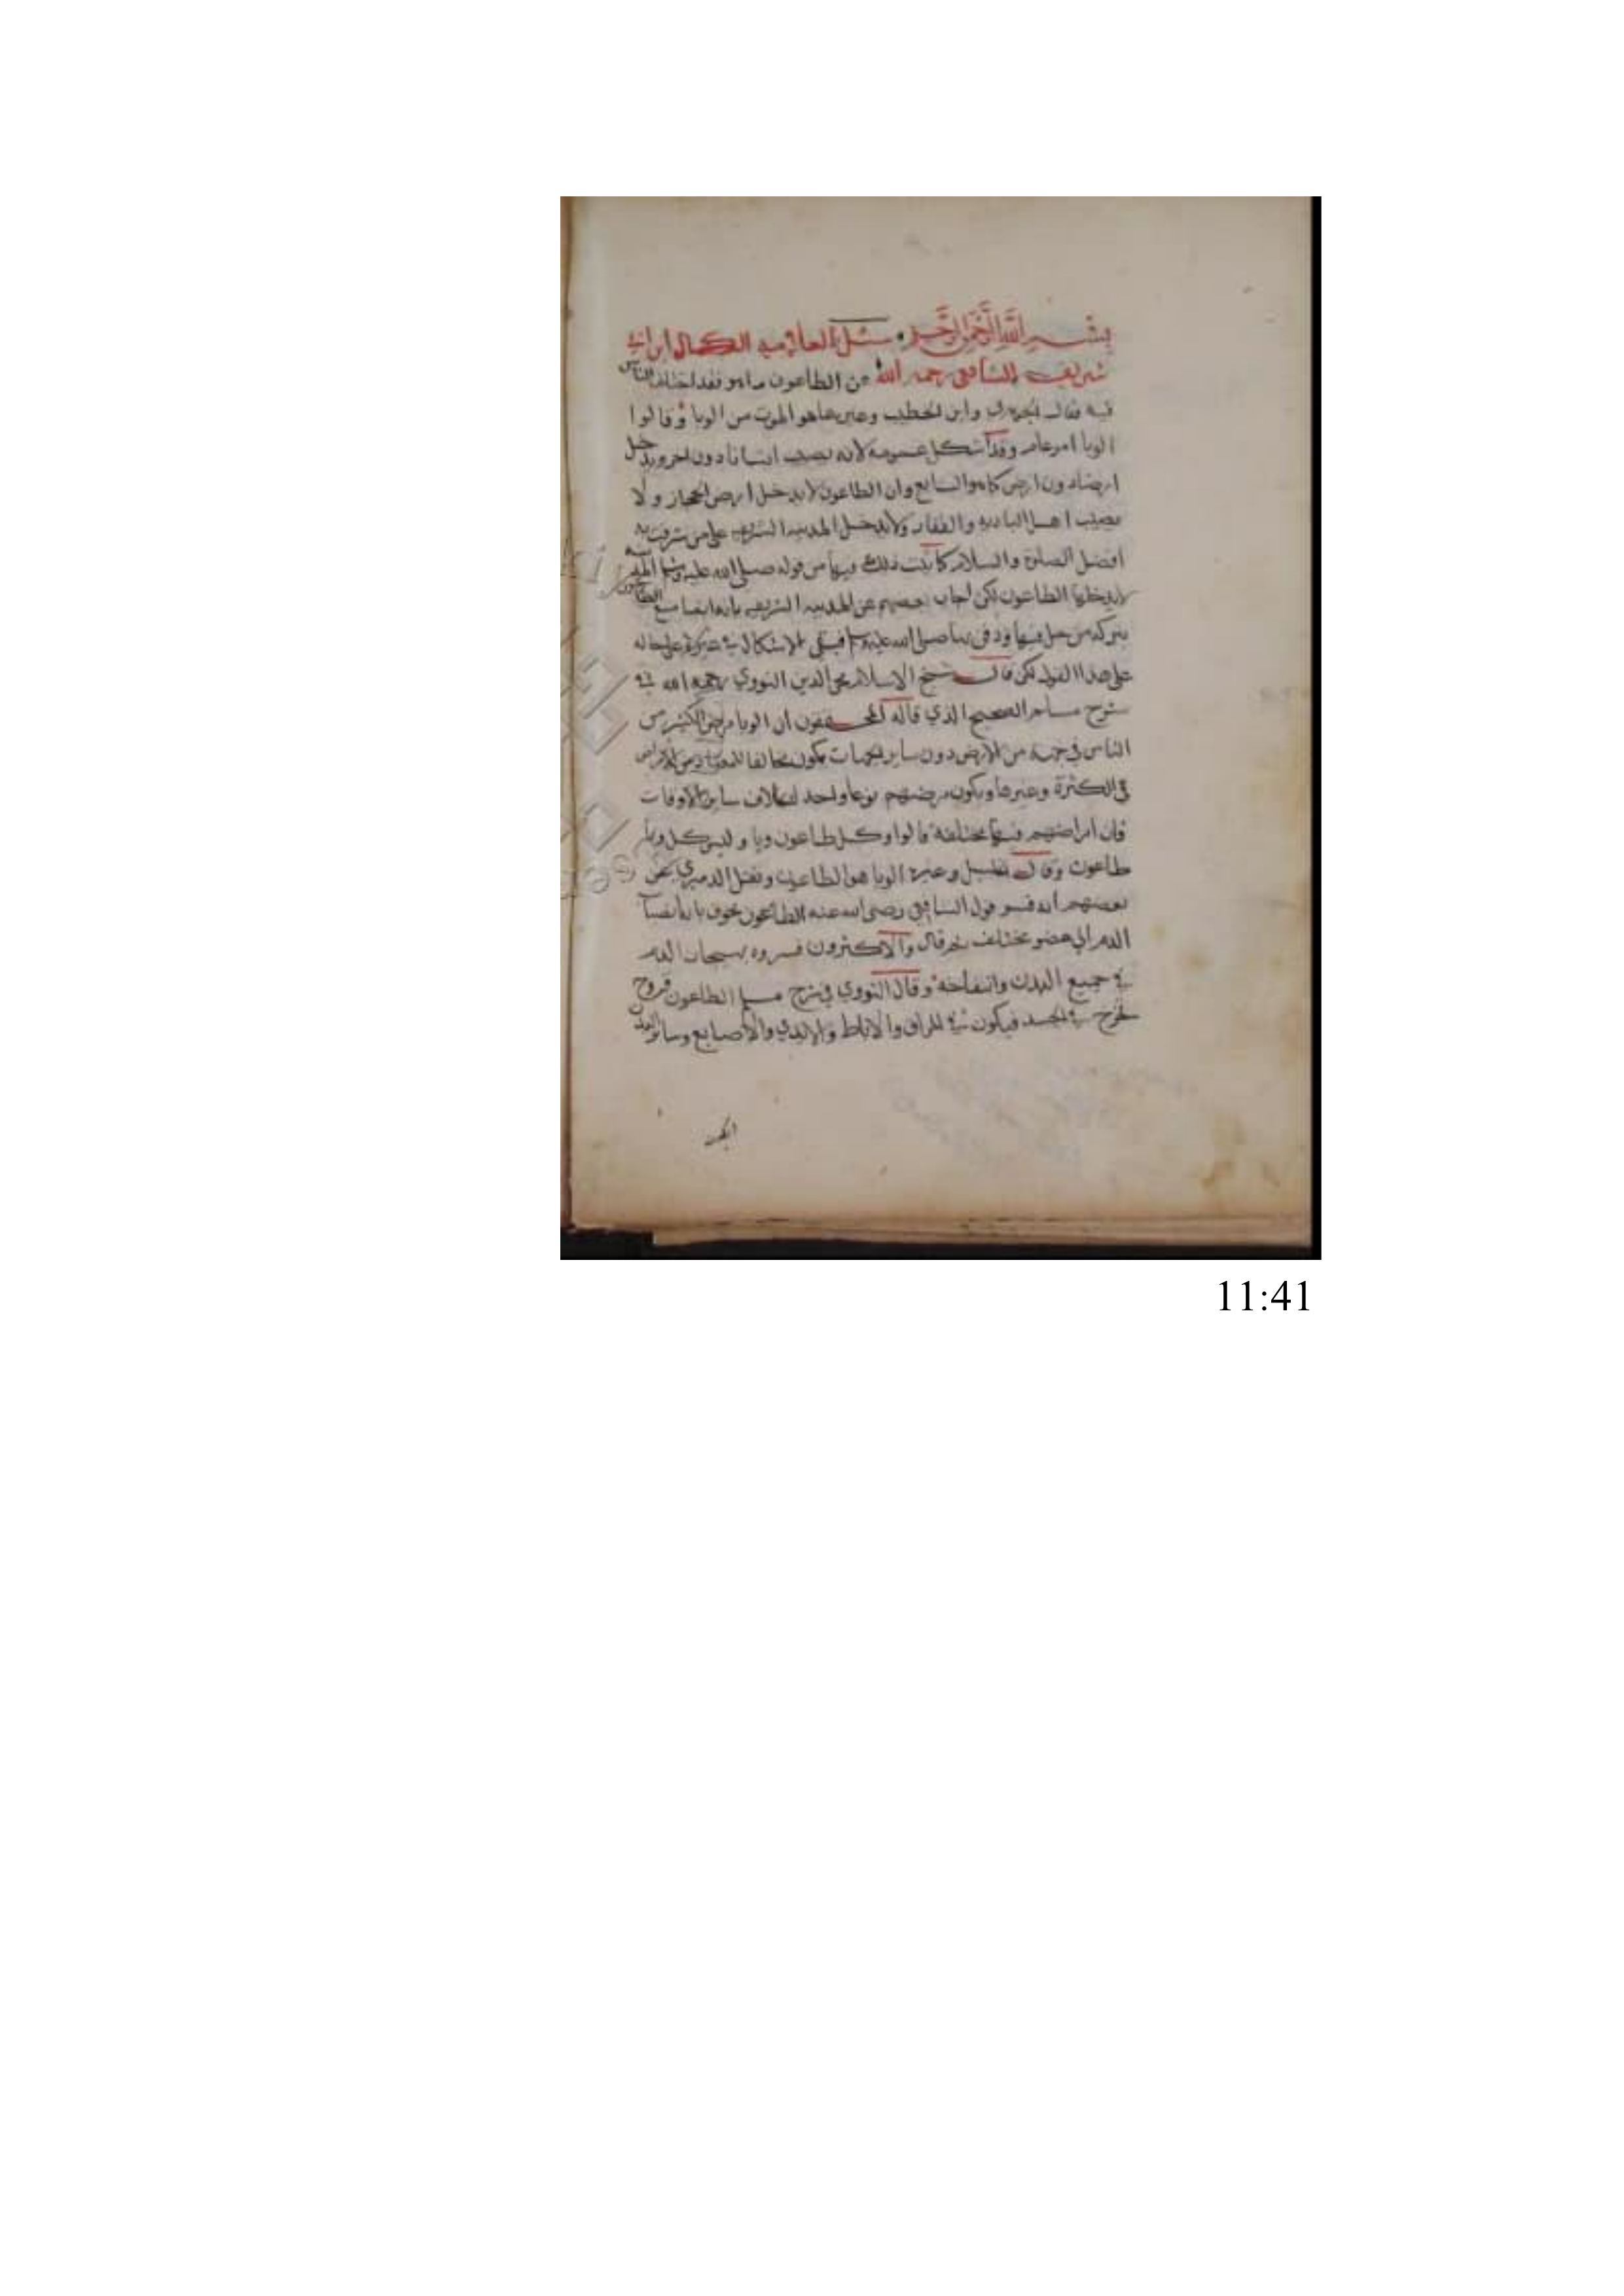 بِسْمِ اللَّهِ الرَّحْمَنِ الرَّحِيمِ سئل العلامة الكمال ابن ابي
شريف الشافعي رحمه الله عن الطاعون ما هو فقد اختلف الناس
فيه فقال الجوهري وابن الخطيب وغيرهما هو الموت من الوبا وقالوا
الوبا امر عام وقد اشكل عمومه لانه يصيب انسانا دون اخر ويدخل
ارضا دون ارض كما هو الشايع وان الطاعون لا يدخل ارض الحجاز ولا
يصيب اهل البادية والقفار ولا يدخل المدينة الشريفة على من شرفت به
افضل الصلوة والسلام كما ثبت ذلك فيها من قوله صلى الله عليه وسلم المدينة
لا يدخلها الطاعون لكن اجاب بعضهم عن المدينة الشريفة بانه انما منع الطاعون
ببركة من حل فيها ودفن بها صلى الله عليه وسلم فيبقى الاشكال في غيرها على حاله
على هذا القول لكن قال شيخ الاسلام محي الدين النووي رحمه الله في
شرح مسلم الصحيح الذي قاله المحققون ان الوبا مرض الكثير من
الناس في جهة من الارض دون ساير الجهات يكون مخالفا للمعتاد من الامراض
في الكثرة وغيرها ويكون مرضهم نوعا واحد بخلاف ساير الاوقات
فان امراضهم فيها مختلفة قالوا وكل طاعون وبا وليس كل وبا
طاعون وقال الخليل وغيره الوبا هو الطاعون ونقل الدميري عن
بعضهم انه فسر قول الشافعي رضي الله عنه الطاعون مخوف بانه انصباب
الدم الى عضو مختلف ثم قال والاكثرون فسروه بهيجان الدم
في جميع البدن وانتفاخه وقال النووي في شرح مسلم الطاعون قروح
تخرج في الجسد فيكون في المراق والاباط والايدي والاصابع وساير البدن
11:41